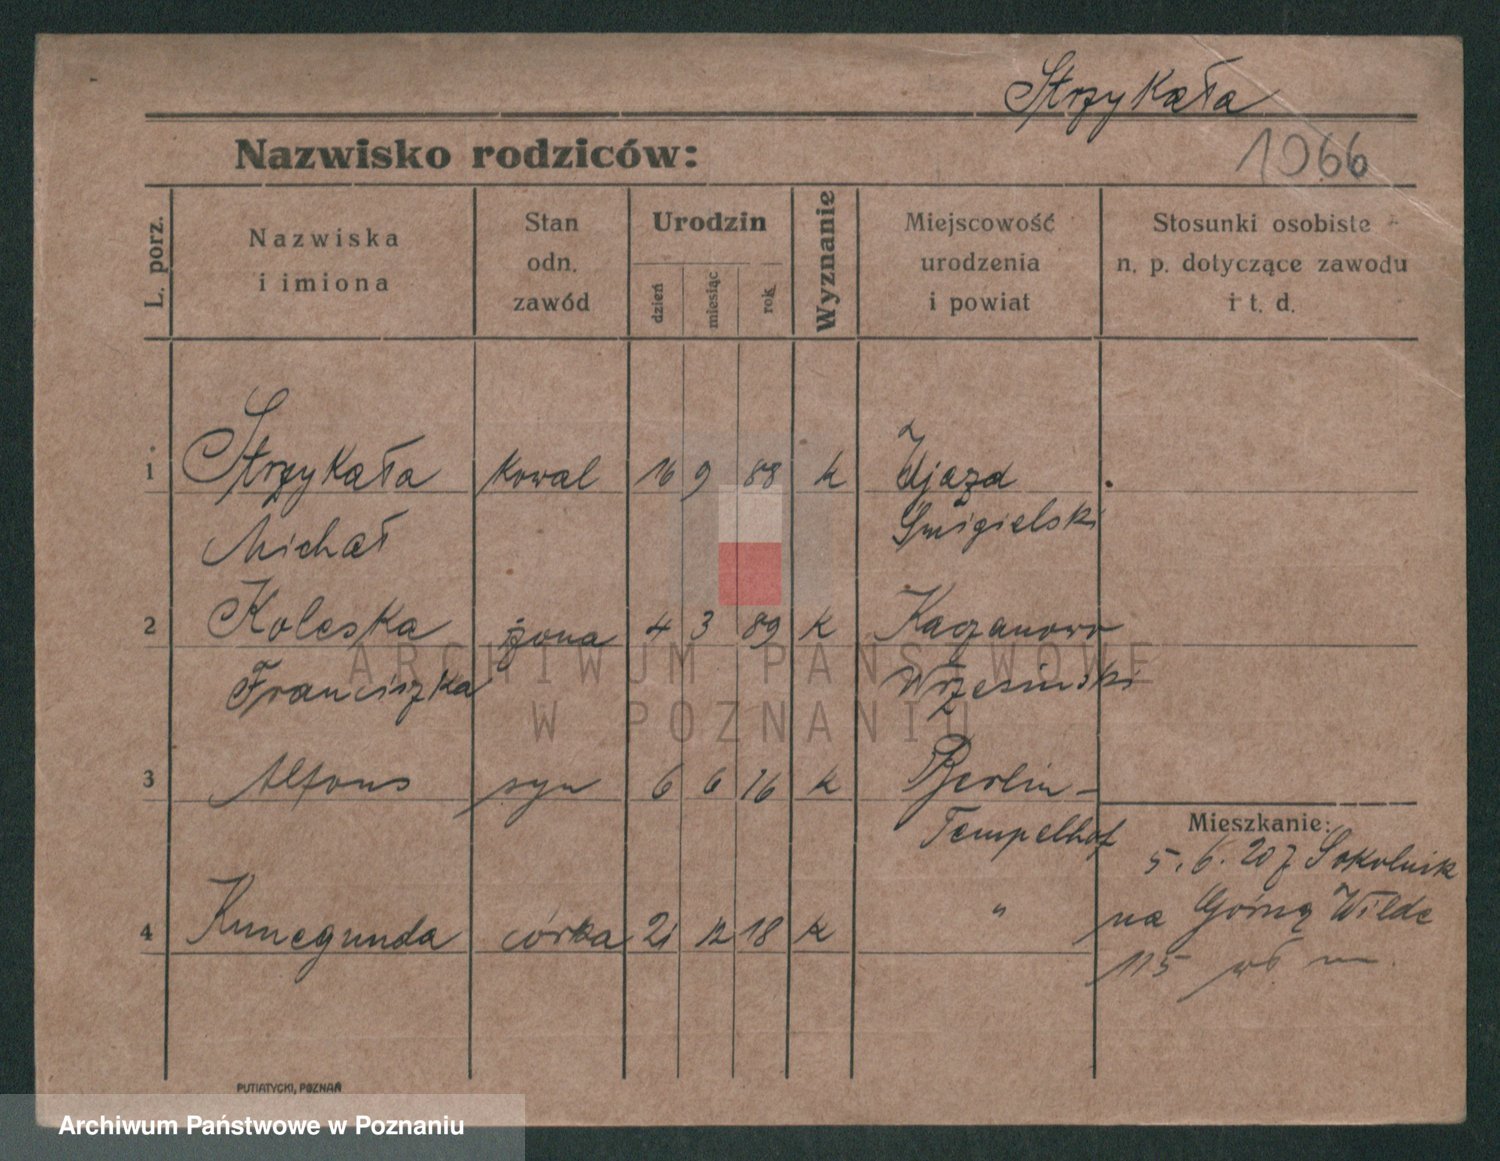 Strzykała
1066
Nazwisko rodziców:
L. porz.
Nazwiska
i imiona
Stan
odn.
zawód
Urodzin
dzień
miesiąc
rok
Wyznanie
Miejscowość
urodzenia
i powiat
Stosunki osobiste
n. p. dotyczące zawodu
i t. d.
1 Strzykała kowal 16 9 88 k Ujazd
Michał Śmigielski
2 Koleska żona 4 3 89 k Kaczanowo
Franciszka Wrzesiński
3 Alfons syn 6 6 16 k Berlin-
Tempelhof
4 Kunegunda córka 21 12 18 k "
Mieszkanie:
5.6.20 z Sokolnik
na Górną Wildę
115
PUTIATYCKI, POZNAŃ
ARCHIWUM PAŃSTWOWE
W POZNANIU
Archiwum Państwowe w Poznaniu